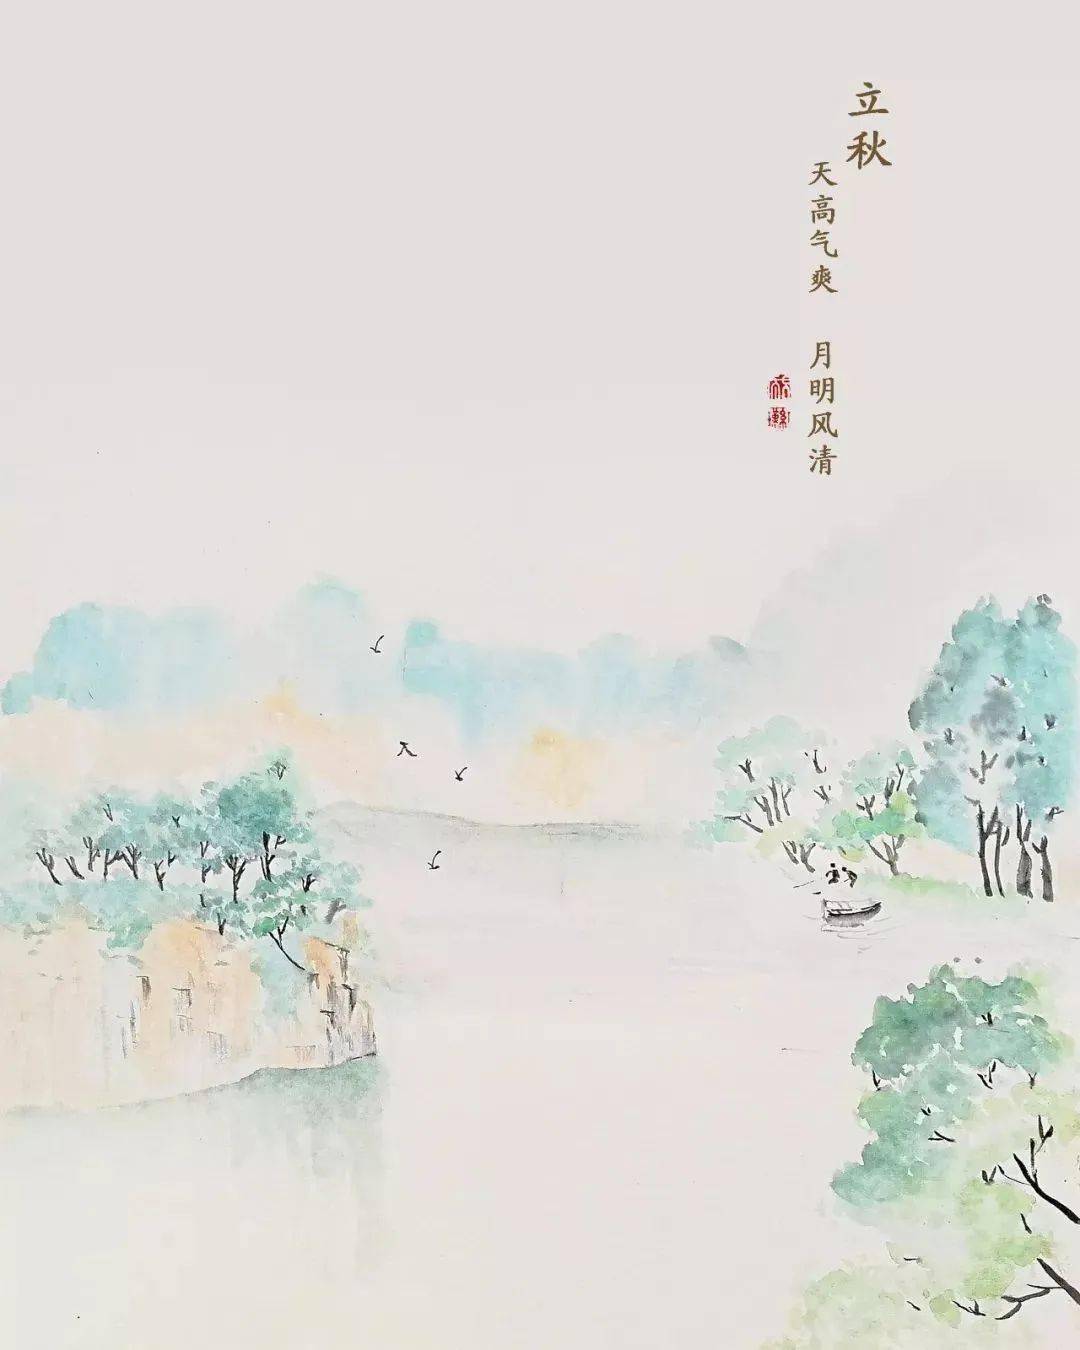 立秋
天高气爽 月明风清